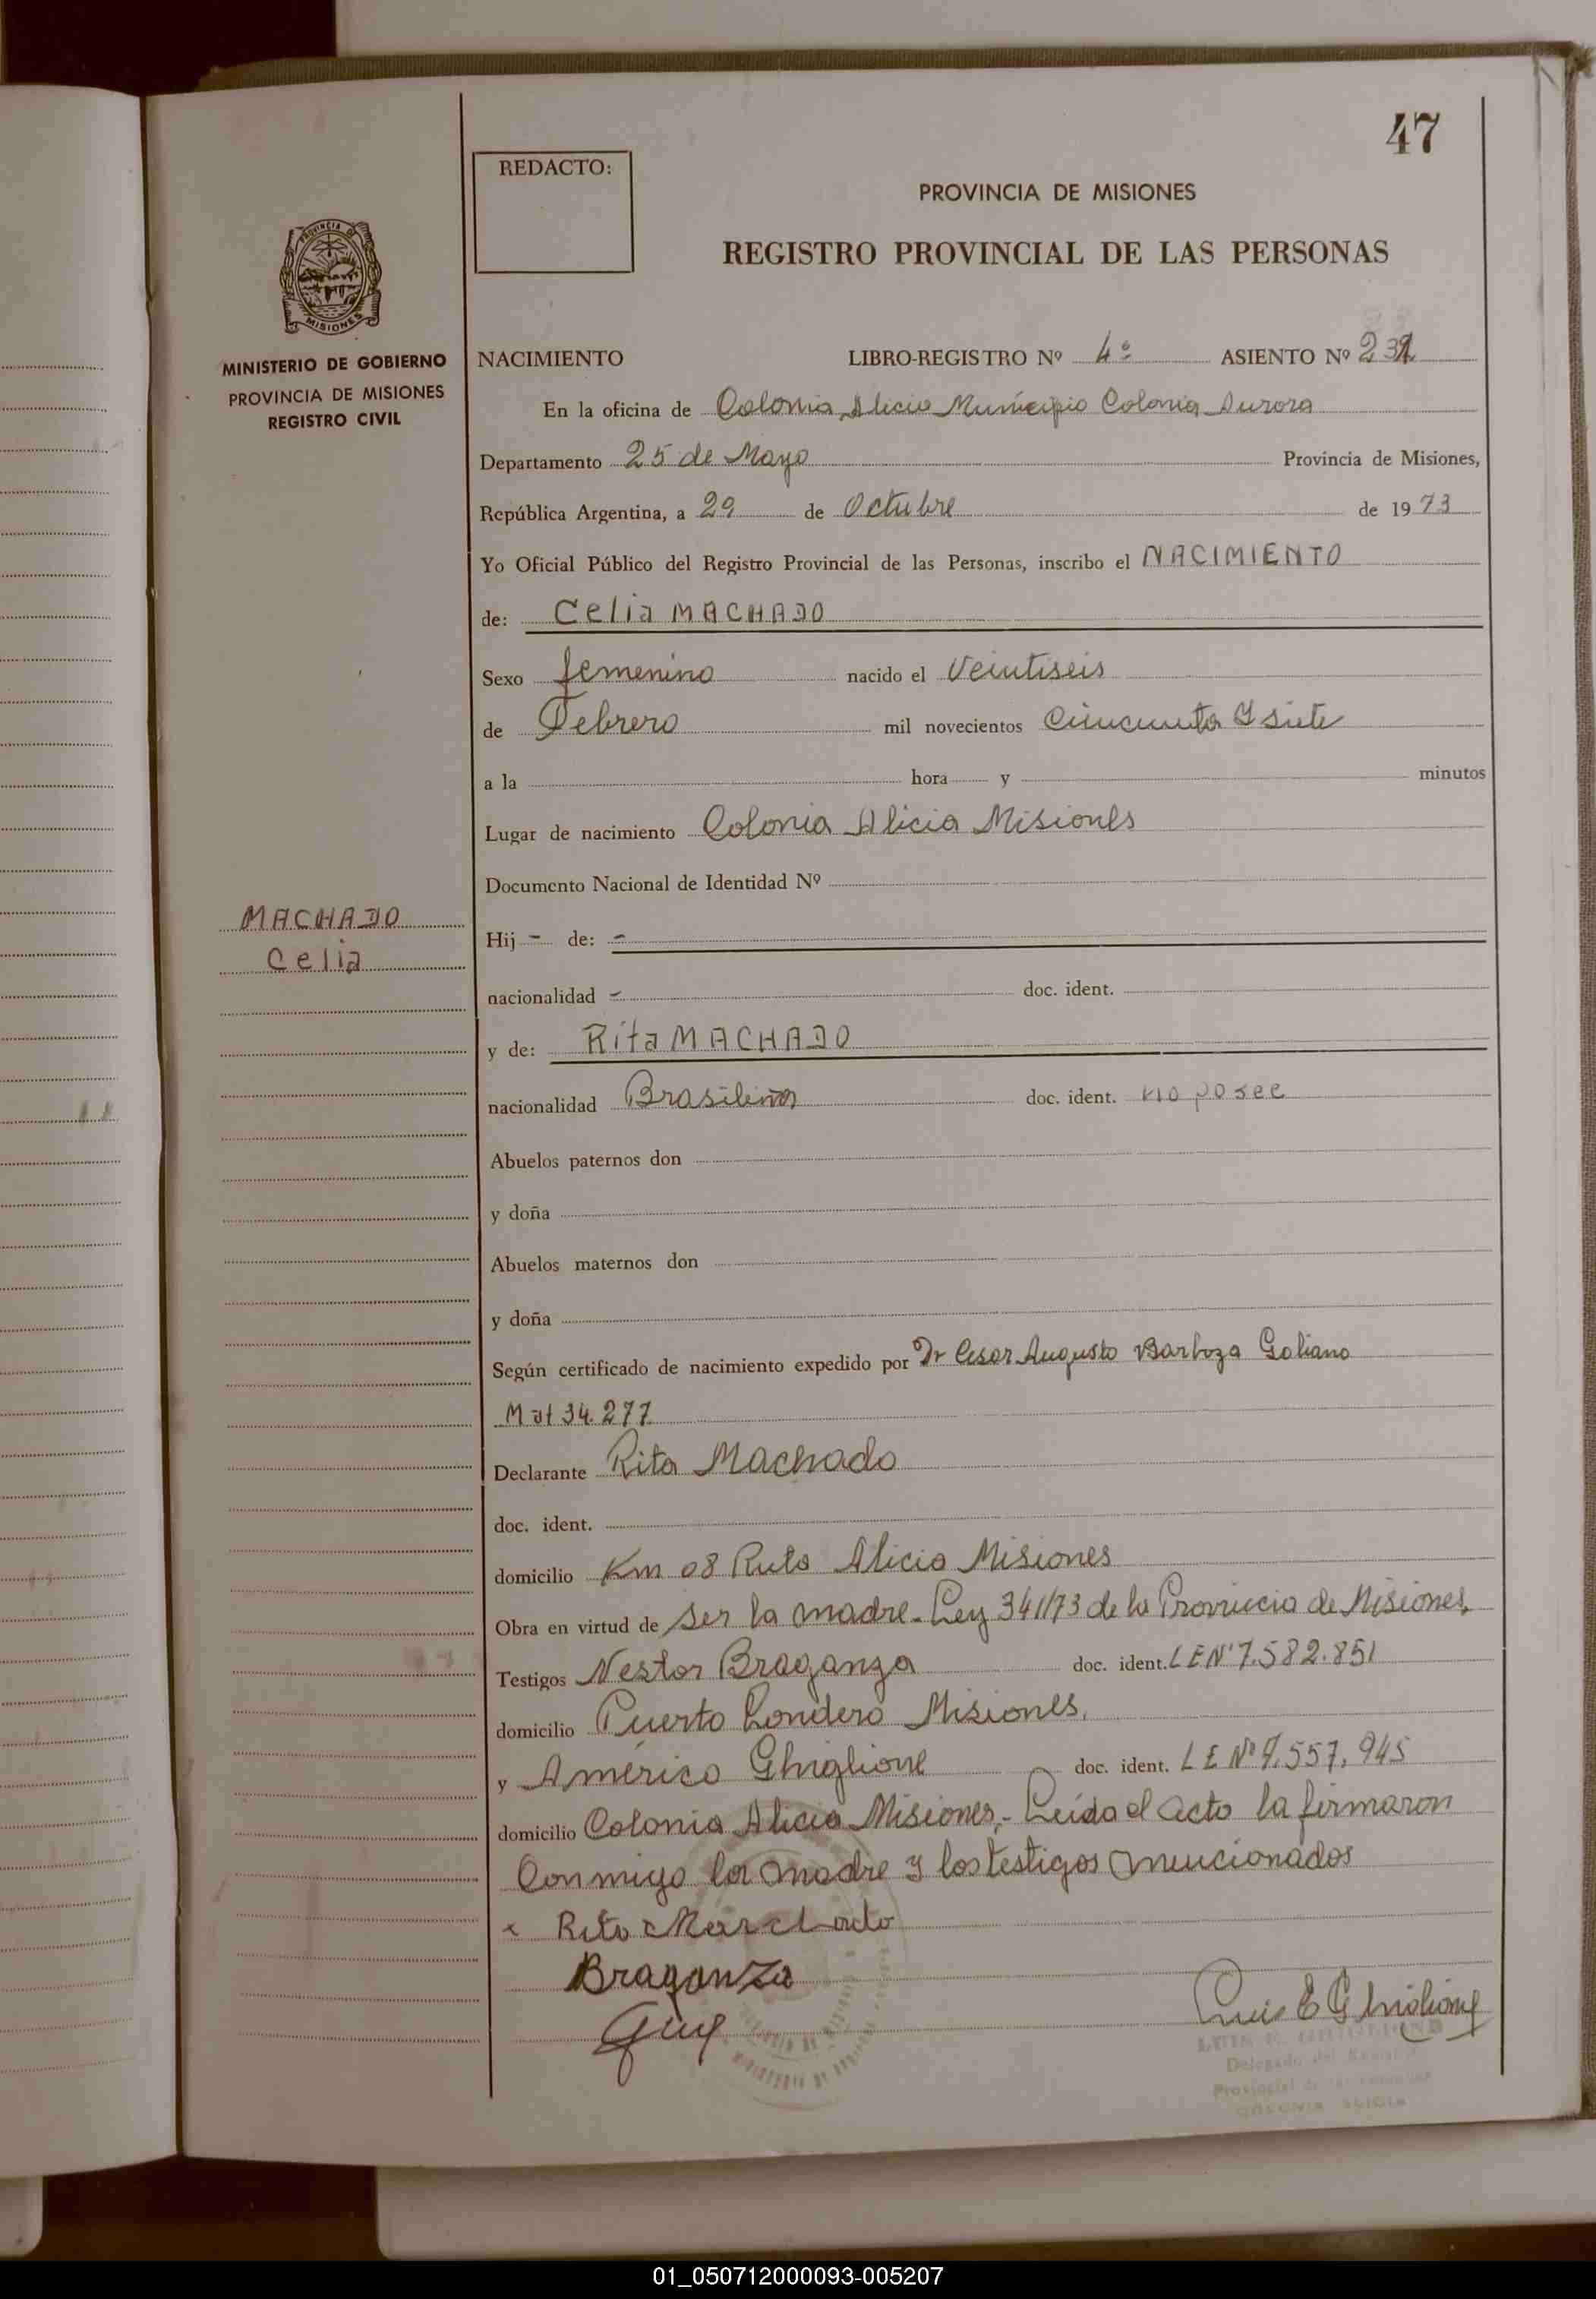 47
REDACTO:
PROVINCIA DE MISIONES
REGISTRO PROVINCIAL DE LAS PERSONAS
PROVINCIA DE
MISIONES
MINISTERIO DE GOBIERNO
PROVINCIA DE MISIONES
REGISTRO CIVIL
NACIMIENTO LIBRO-REGISTRO Nº 4º ASIENTO Nº
En la oficina de Colonia Alicia Municipio Colonia Aurora
Departamento 25 de Mayo Provincia de Misiones,
República Argentina, a 29 de Octubre de 1973
Yo Oficial Público del Registro Provincial de las Personas, inscribo el NACIMIENTO
de: Celia MACHADO
Sexo femenino nacido el Veintiseis
de Febrero mil novecientos Cincuenta y siete
a la hora y minutos
Lugar de nacimiento Colonia Alicia Misiones
Documento Nacional de Identidad Nº
MACHADO
Celia
Hij - de: -
nacionalidad - doc. ident.
y de: Rita MACHADO
nacionalidad Brasileña doc. ident. no posee
Abuelos paternos don
y doña
Abuelos maternos don
y doña
Según certificado de nacimiento expedido por Dr Cesar Augusto Barboza Galiano
Mat 34.277
Declarante Rita Machado
doc. ident.
domicilio Km 08 Ruta Alicia Misiones
Obra en virtud de ser la madre - Ley 341/73 de la Provincia de Misiones,
Testigos Nestor Braganza doc. ident. L E Nº 7.582.851
domicilio Puerto Londero Misiones.
y Américo Ghiglione doc. ident. L E Nº 7.557.945
domicilio Colonia Alicia Misiones,- Leida el acto la firmaron
Conmigo la madre y los testigos mencionados
x Rita Marchado
Braganza
Luis E Ghiglione
LUIS E. GHIGLIONE
Delegado del
Provincial
COLONIA ALICIA
01_050712000093-005207